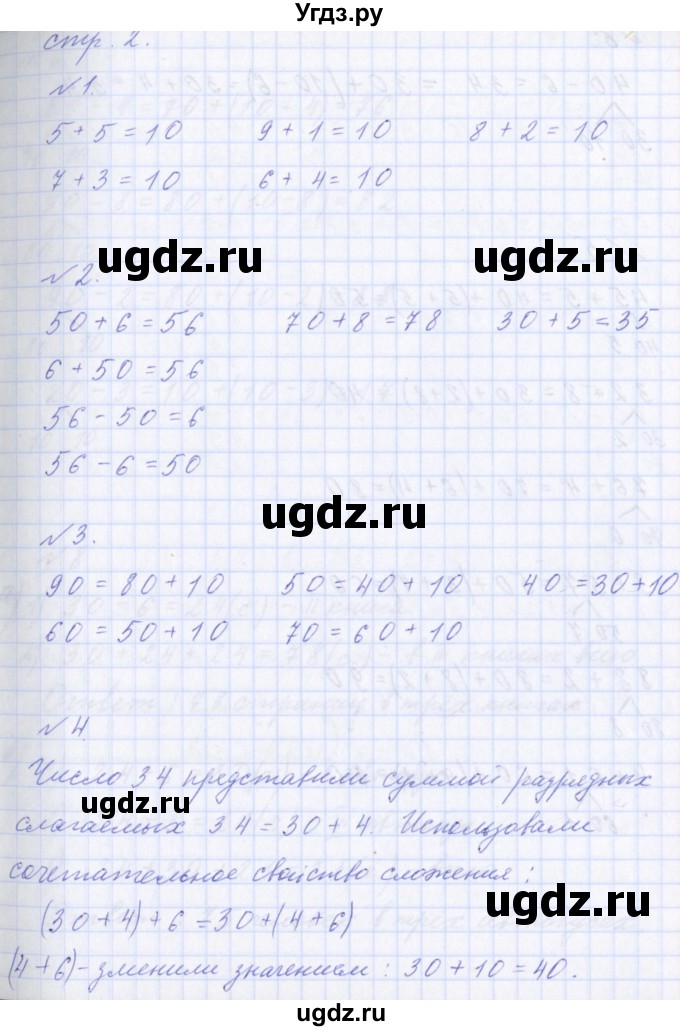 Угдз.ру
стр. 2.
№1.
5+5=10 9+1=10 8+2=10
7+3=10 6+4=10
ugdz.ru ugdz.ru
№2.
50+6=56 70+8=78 30+5=35
6+50=56
56-50=6
56-6=50
ugdz.ru
№3.
90=80+10 50=40+10 40=30+10
60=50+10 70=60+10
№4.
Число 34 представили суммой разрядных
ugdz.ru
слагаемых 34=30+4. Использовали
сочетательное свойство сложения:
ugdz.ru
(30+4)+6=30+(4+6)
(4+6)-зменили значением: 30+10=40.
ugdz.ru